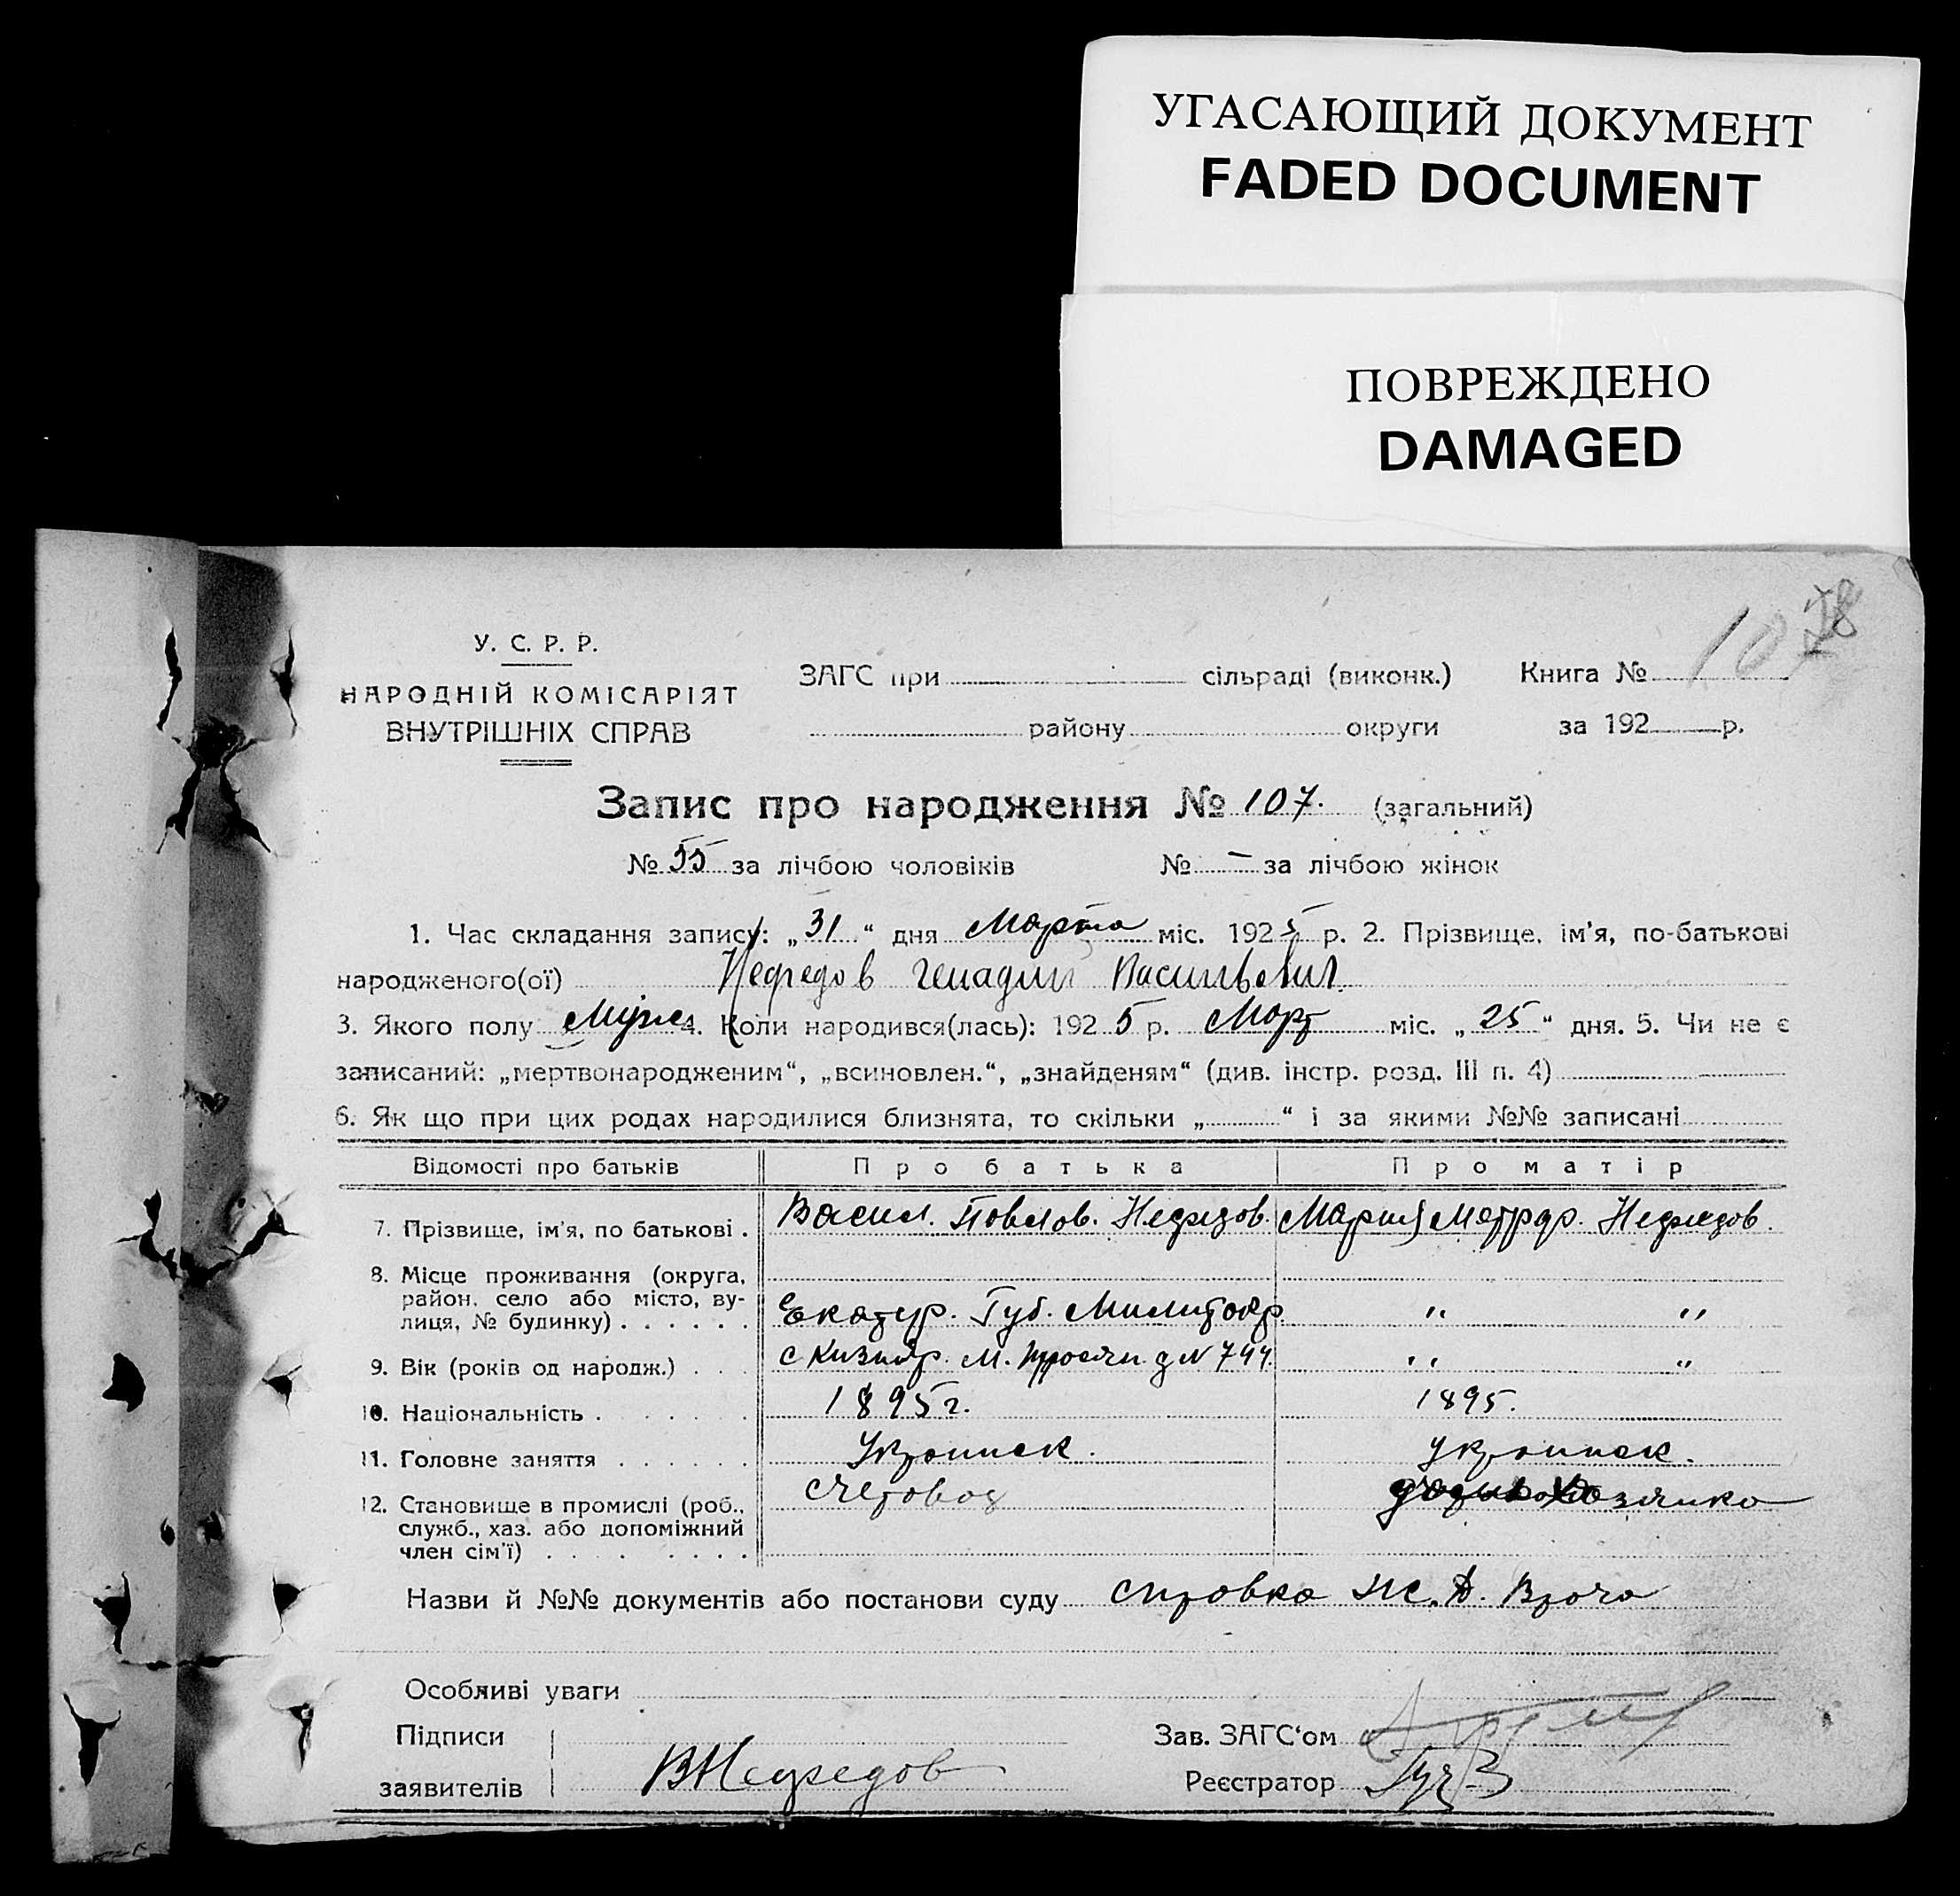 УГАСАЮЩИЙ ДОКУМЕНТ
FADED DOCUMENT
ПОВРЕЖДЕНО
DAMAGED
У. С. Р. Р.
НАРОДНІЙ КОМІСАРІЯТ
ВНУТРІШНІХ СПРАВ
ЗАГС при сільраді (виконк.) Книга №
району округи за 192 р.
Запис про народження № 107. (загальний)
№ 55 за лічбою чоловіків № – за лічбою жінок
1. Час складання запису: „31“ дня Марта міс. 1925 р. 2. Прізвище, ім'я, по-батькові
народженого(ої) Нефедов Генадий Васильевич
3. Якого полу Муж 4. Коли народився(лась): 1925 р. Март міс. „25“ дня. 5. Чи не є
записаний: „мертвонародженим“, „всиновлен.“, „знайденям“ (див. інстр. розд. III п. 4)
6. Як що при цих родах народилися близнята, то скільки „ “ і за якими №№ записані
Відомості про батьків Про батька Про матір
7. Прізвище, ім'я, по батькові . Васил. Павлов. Нефедов. Мария Митроф. Нефедов.
8. Місце проживання (округа,
район, село або місто, ву-
лиця, № будинку) . . . . . . Екатер. Губ. Мелитопр " "
9. Вік (років од народж.) . . . с Кизияр. М. д № 744. " "
10. Національність . . . . . . 1895 г. 1895.
11. Головне заняття . . . . . . Украинск. Украинск.
12. Становище в промислі (роб., Счетовод Хозяйка
служб., хаз. або допоміжний
член сім'ї) . . . . . . . .
Назви й №№ документів або постанови суду справка Ж. Д. Врача
Особливі уваги
Підписи Зав. ЗАГС'ом
заявителів ВНефедов Реєстратор